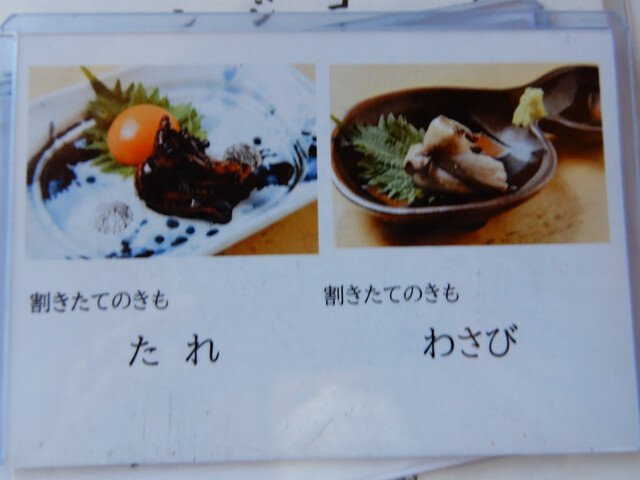 割きたてのきも
たれ
割きたてのきも
わさび